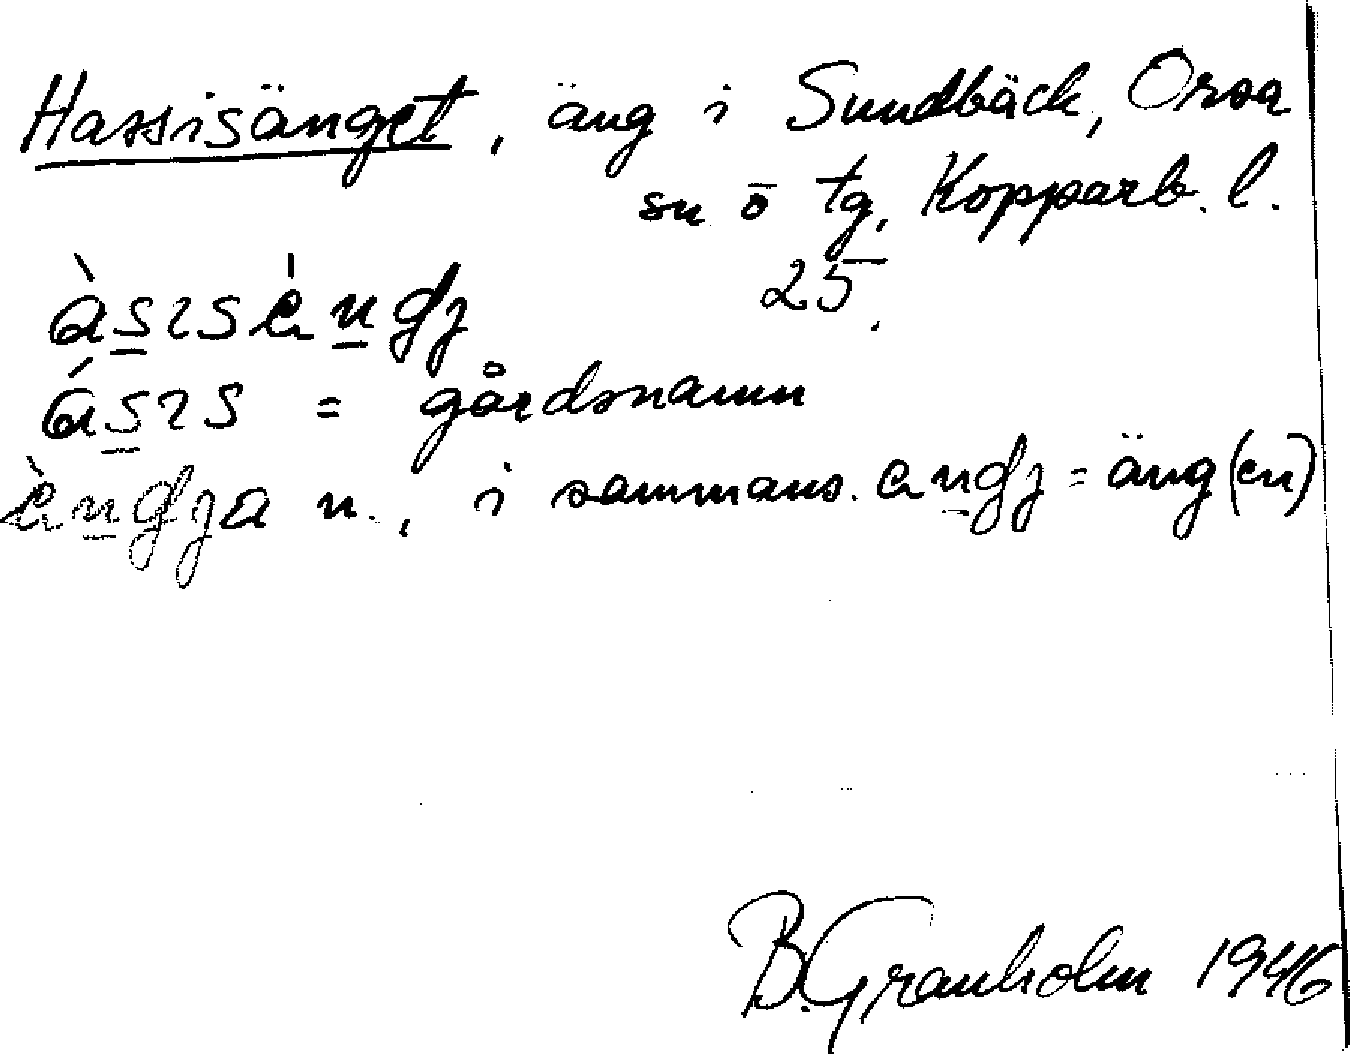 Hassisänget, äng i Sundbäck, Orsa
sn ō tg, Kopparb. l.
25.
àsısèngʒ
ásıs = gårdsnamn
èngʒa n., i sammans. engʒ = äng(en)
B. Granholm 1946